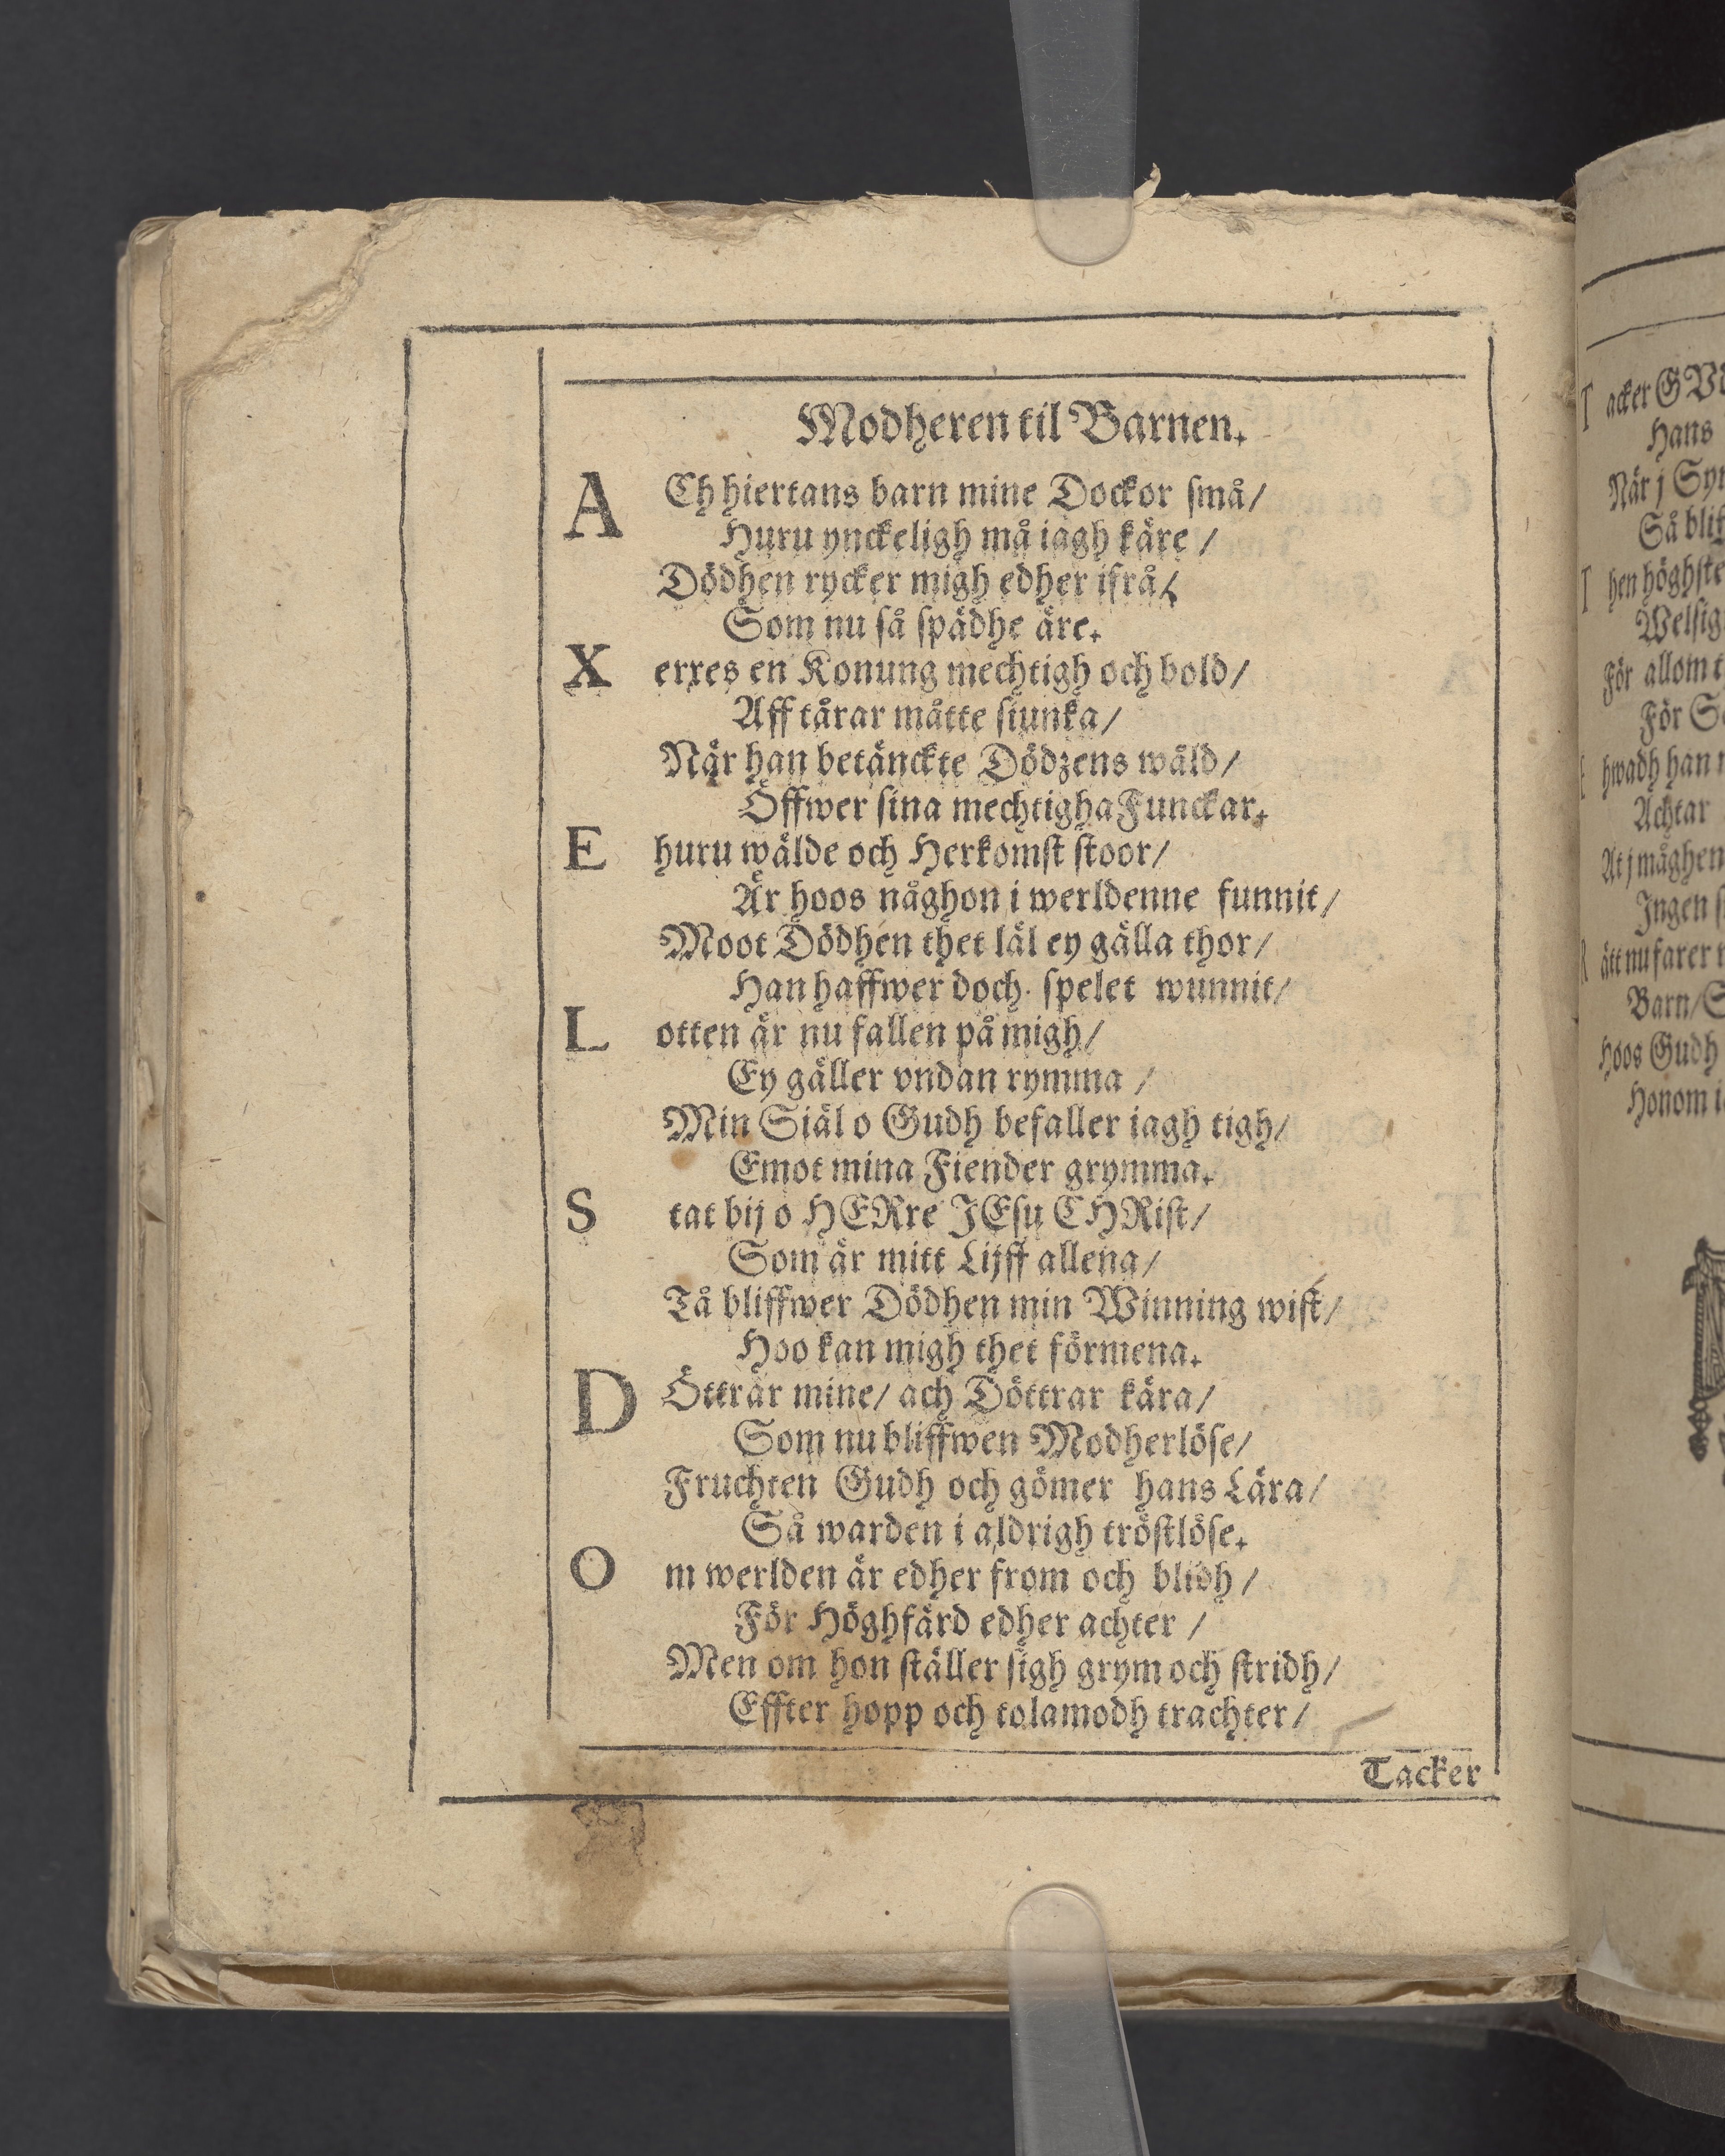 Modheren til Barnen.
ACh hiertans barn mine Dockor små/
Huru ynckeligh må iagh kåre /
Dödhen rycker migh edher ifrå/
Som nu så spädhe äre.
Xerxes en Konung mechtigh och bold/
Aff tårar måtte siunka/
När han betänckte Dödzens wäld/
Öffwer sina mechtigha Funckar.
Ehuru wälde och Herkomst stoor/
Är hoos någhon i werldenne funnit/
Moot Dödhen thet läl ey gälla thor/
Han haffwer doch spelet wunnit/
Lotten är nu fallen på migh/
Ey gäller vndan rymma /
Min Siäl o Gudh befaller iagh tigh/
Emot mina Fiender grymma.
Stat bij o HERre JEsu CHRist/
Som är mitt Lijff allena/
Tå bliffwer Dödhen min Winning wist/
Hoo kan migh thet förmena.
DÖttrar mine/ ach Döttrar kära/
Som nu bliffwen Modherlöse/
Fruchten Gudh och gömer hans Lära/
Så warden i aldrigh tröstlöse.
Om werlden är edher from och blidh /
För Höghfärd edher achter /
Men om hon ställer sigh grym och stridh/
Effter hopp och tolamodh trachter/
Tacker
Tacker
Hans
När j
Så
Then höghste
För allom
För
hwadh han
Achtar
At j måghen
Jngen
Rätt nu farer
Barn/
Hoos Gudh
Honom